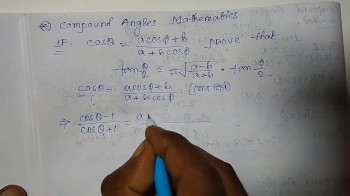 Compound Angles Mathematics
IF. cosθ = acosφ+b / a+bcosφ prove that
tan θ/2 = ±√(a-b/a+b) · tan φ/2
cosθ/1 = acosφ+b / a+bcosφ
⇒ cosθ-1 / cosθ+1 = a